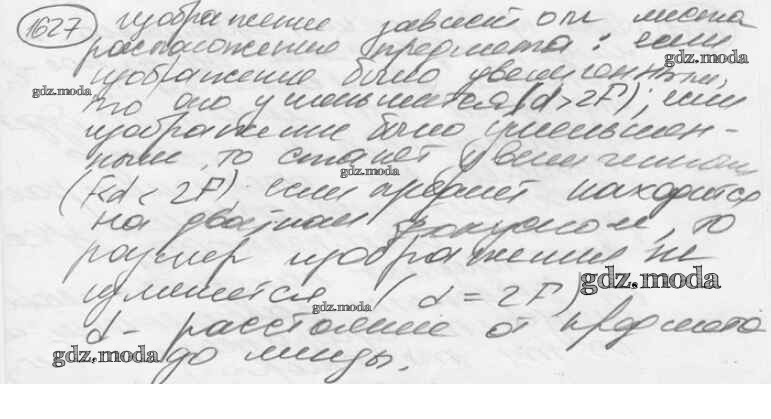 1627 изображение зависит от места
расположения предмета: если
gdz.moda
изображение было увеличенным,
gdz.moda
то оно уменьшается (d>2F); если
изображение было уменьшен-
ным, то станет увеличенным
gdz.moda
(F<d<2F) если предмет находится
на двойном фокусном, то
размер изображения не
gdz.moda
изменется (d=2F)
gdz.moda
d - расстояние от предмета
gdz.moda
до линзы.